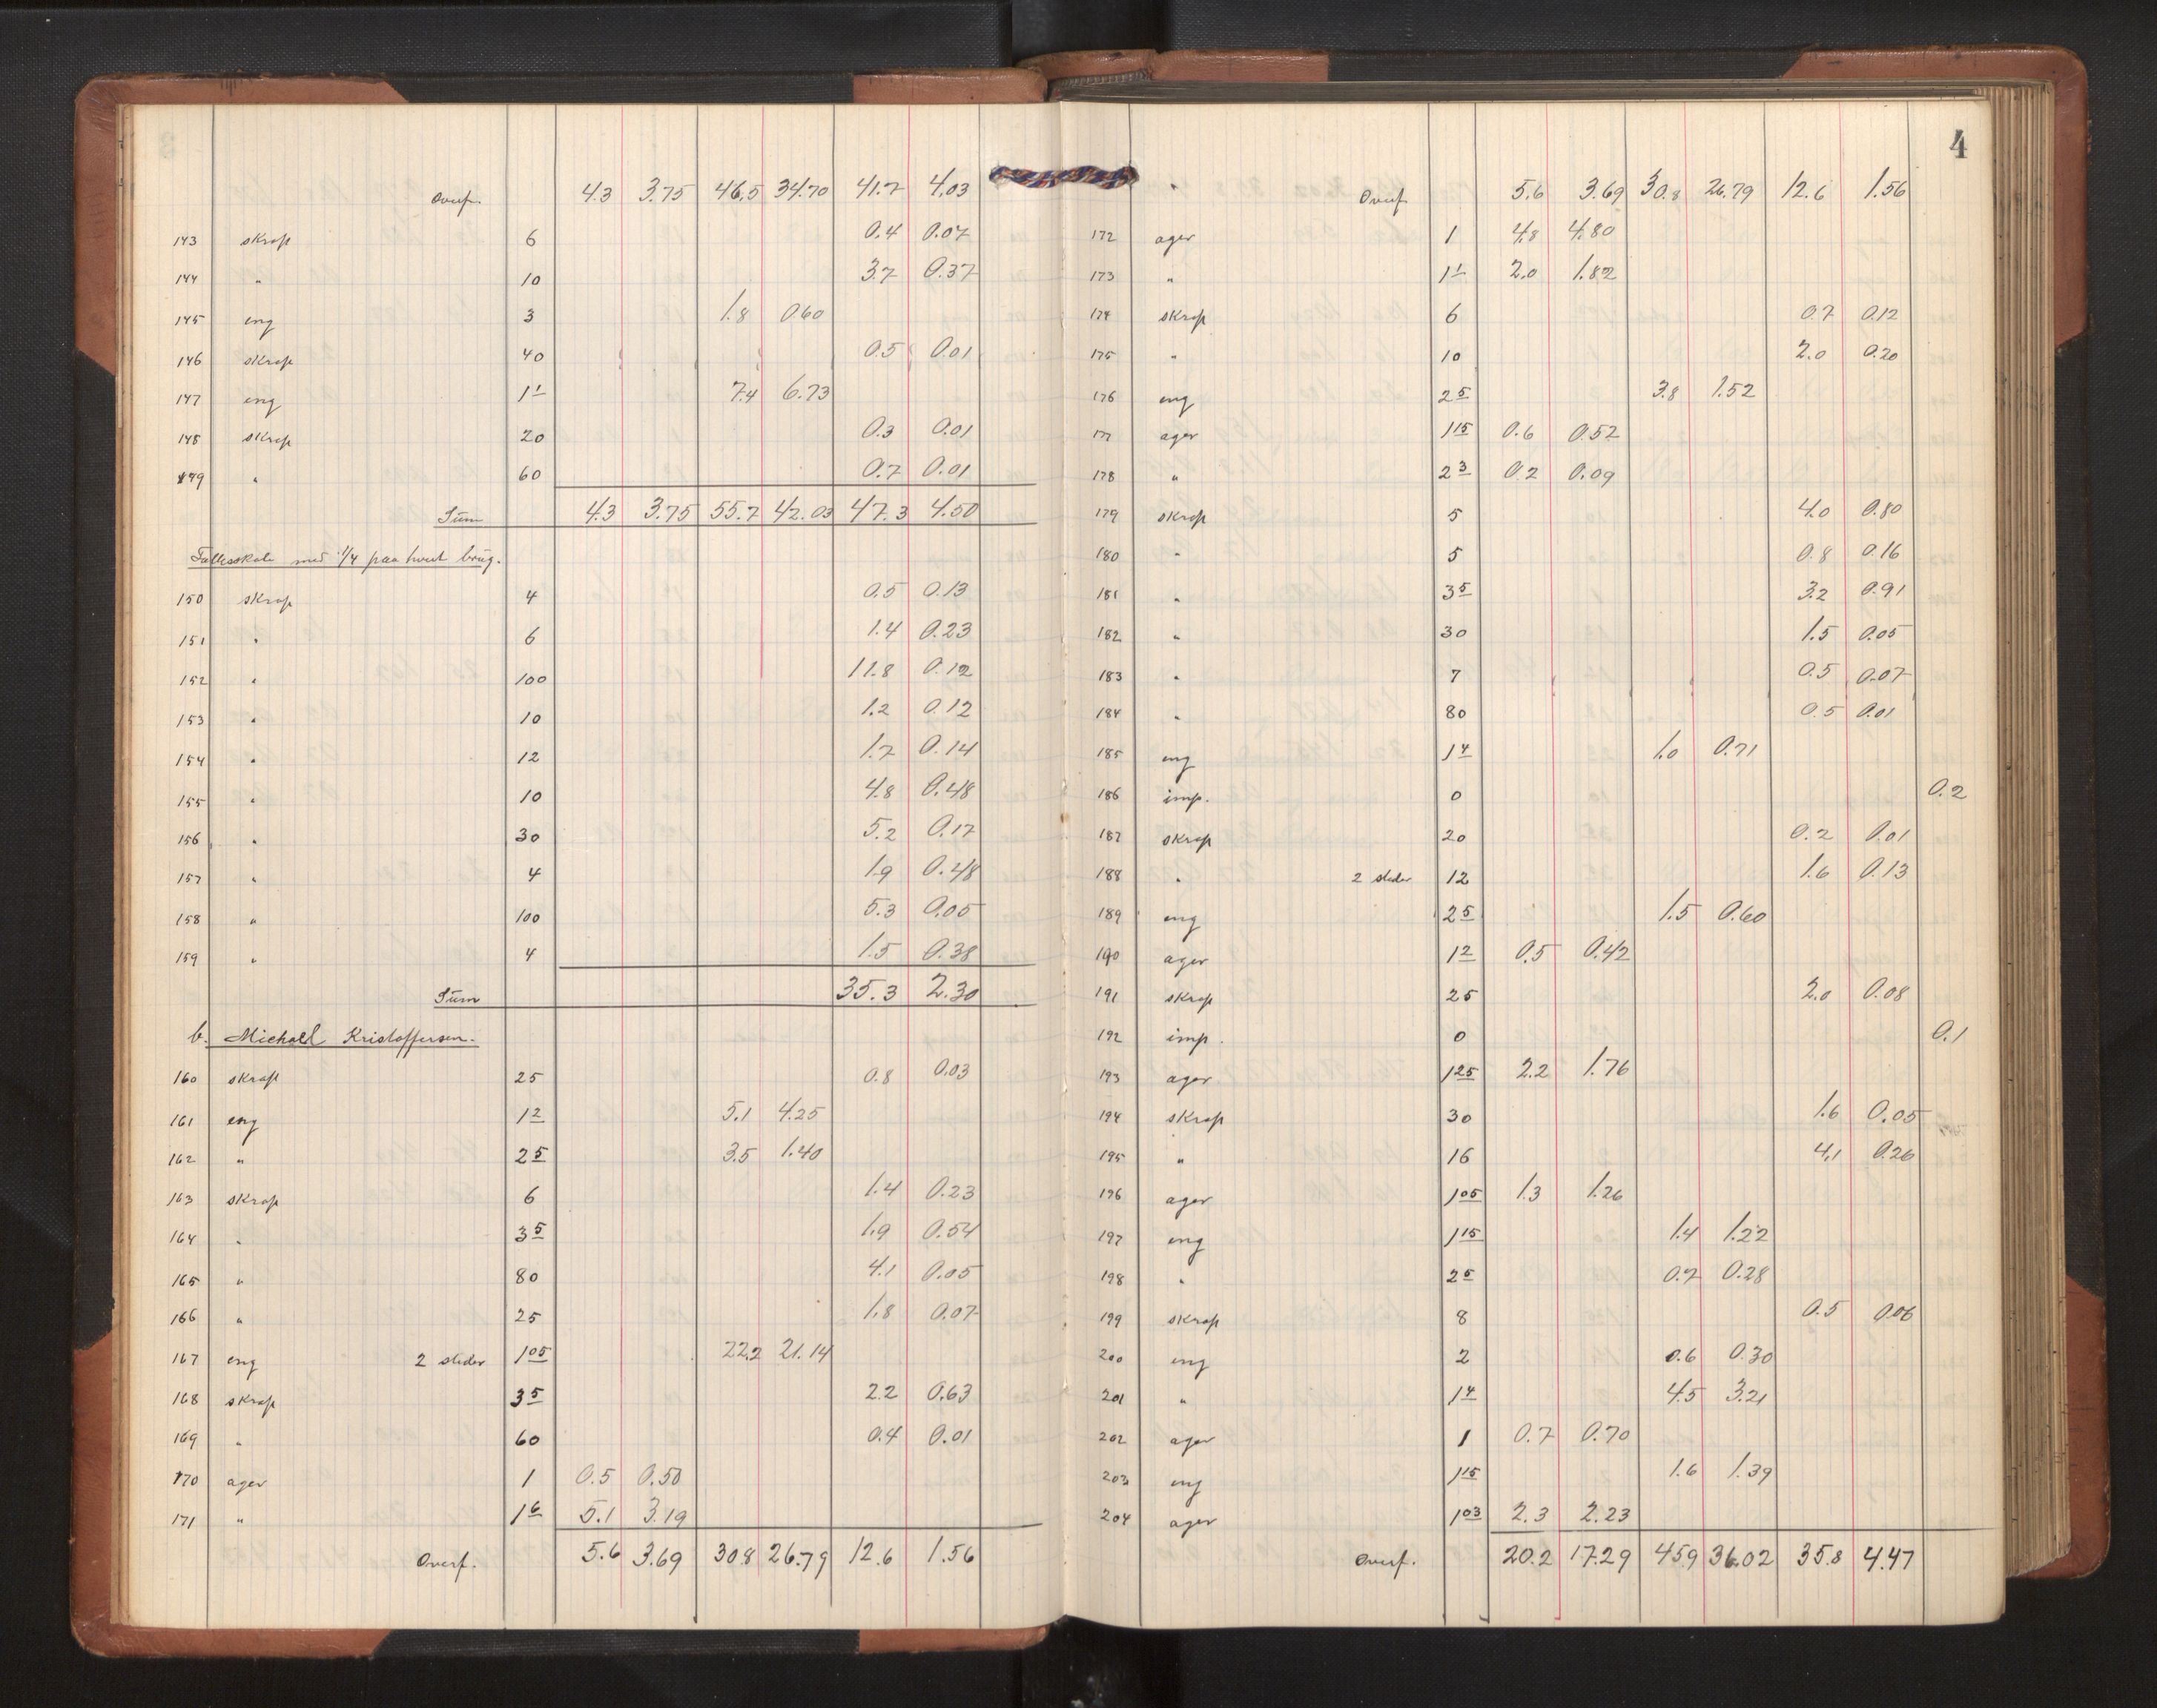 Overf. 4.3 3.75 46.5 34.70 41.7 4.03
143 skrap 6 0.4 0.07
144 " 10 3.7 0.37
145 eng 3 1.8 0.60
146 skrap 40 0.5 0.01
147 eng 1 1 7.4 6.73
148 skrap 20 0.3 0.01
149 " 60 0.7 0.01
Sum 4.3 3.75 55.7 42.03 47.3 4.50
med 1/4 paa hvert brug.
150 skrap 4 0.5 0.13
151 " 6 1.4 0.23
152 " 100 11.8 0.12
153 " 10 1.2 0.12
154 " 12 1.7 0.14
155 " 10 4.8 0.48
156 " 30 5.2 0.17
157 " 4 1.9 0.48
158 " 100 5.3 0.05
159 " 4 1.5 0.38
Sum 35.3 2.30
b. Michael Kristoffersen.
160 skrap 25 0.8 0.03
161 eng 1 2 5.1 4.25
162 " 2 5 3.5 1.40
163 skrap 6 1.4 0.23
164 " 3 5 1.9 0.54
165 " 80 4.1 0.05
166 " 25 1.8 0.07
167 eng 2 steder 1 05 22.2 21.14
168 skrap 3 5 2.2 0.63
169 " 60 0.4 0.01
170 ager 1 0.5 0.50
171 " 1 6 5.1 3.19
Overf. 5.6 3.69 30.8 26.79 12.6 1.56
4
Overf. 5.6 3.69 30.8 26.79 12.6 1.56
172 ager 1 4.8 4.80
173 " 1 1 2.0 1.82
174 skrap 6 0.7 0.12
175 " 10 2.0 0.20
176 eng 2 5 3.8 1.52
177 ager 1 15 0.6 0.52
178 " 2 3 0.2 0.09
179 skrap 5 4.0 0.80
180 " 5 0.8 0.16
181 " 3 5 3.2 0.91
182 " 30 1.5 0.05
183 " 7 0.5 0.07
184 " 80 0.5 0.01
185 eng 1 4 1.0 0.71
186 imp. 0 0.2
187 skrap 20 0.2 0.01
188 " 2 steder 12 1.6 0.13
189 eng 2 5 1.5 0.60
190 ager 1 2 0.5 0.42
191 skrap 25 2.0 0.08
192 imp. 0 0.1
193 ager 1 25 2.2 1.76
194 skrap 30 1.6 0.05
195 " 16 4.1 0.26
196 ager 1 05 1.3 1.26
197 eng 1 15 1.4 1.22
198 " 2 5 0.7 0.28
199 skrap 8 0.5 0.06
200 eng 2 0.6 0.30
201 " 1 4 4.5 3.21
202 ager 1 0.7 0.70
203 eng 1 15 1.6 1.39
204 ager 1 03 2.3 2.23
Overf. 20.2 17.29 45.9 36.02 35.8 4.47